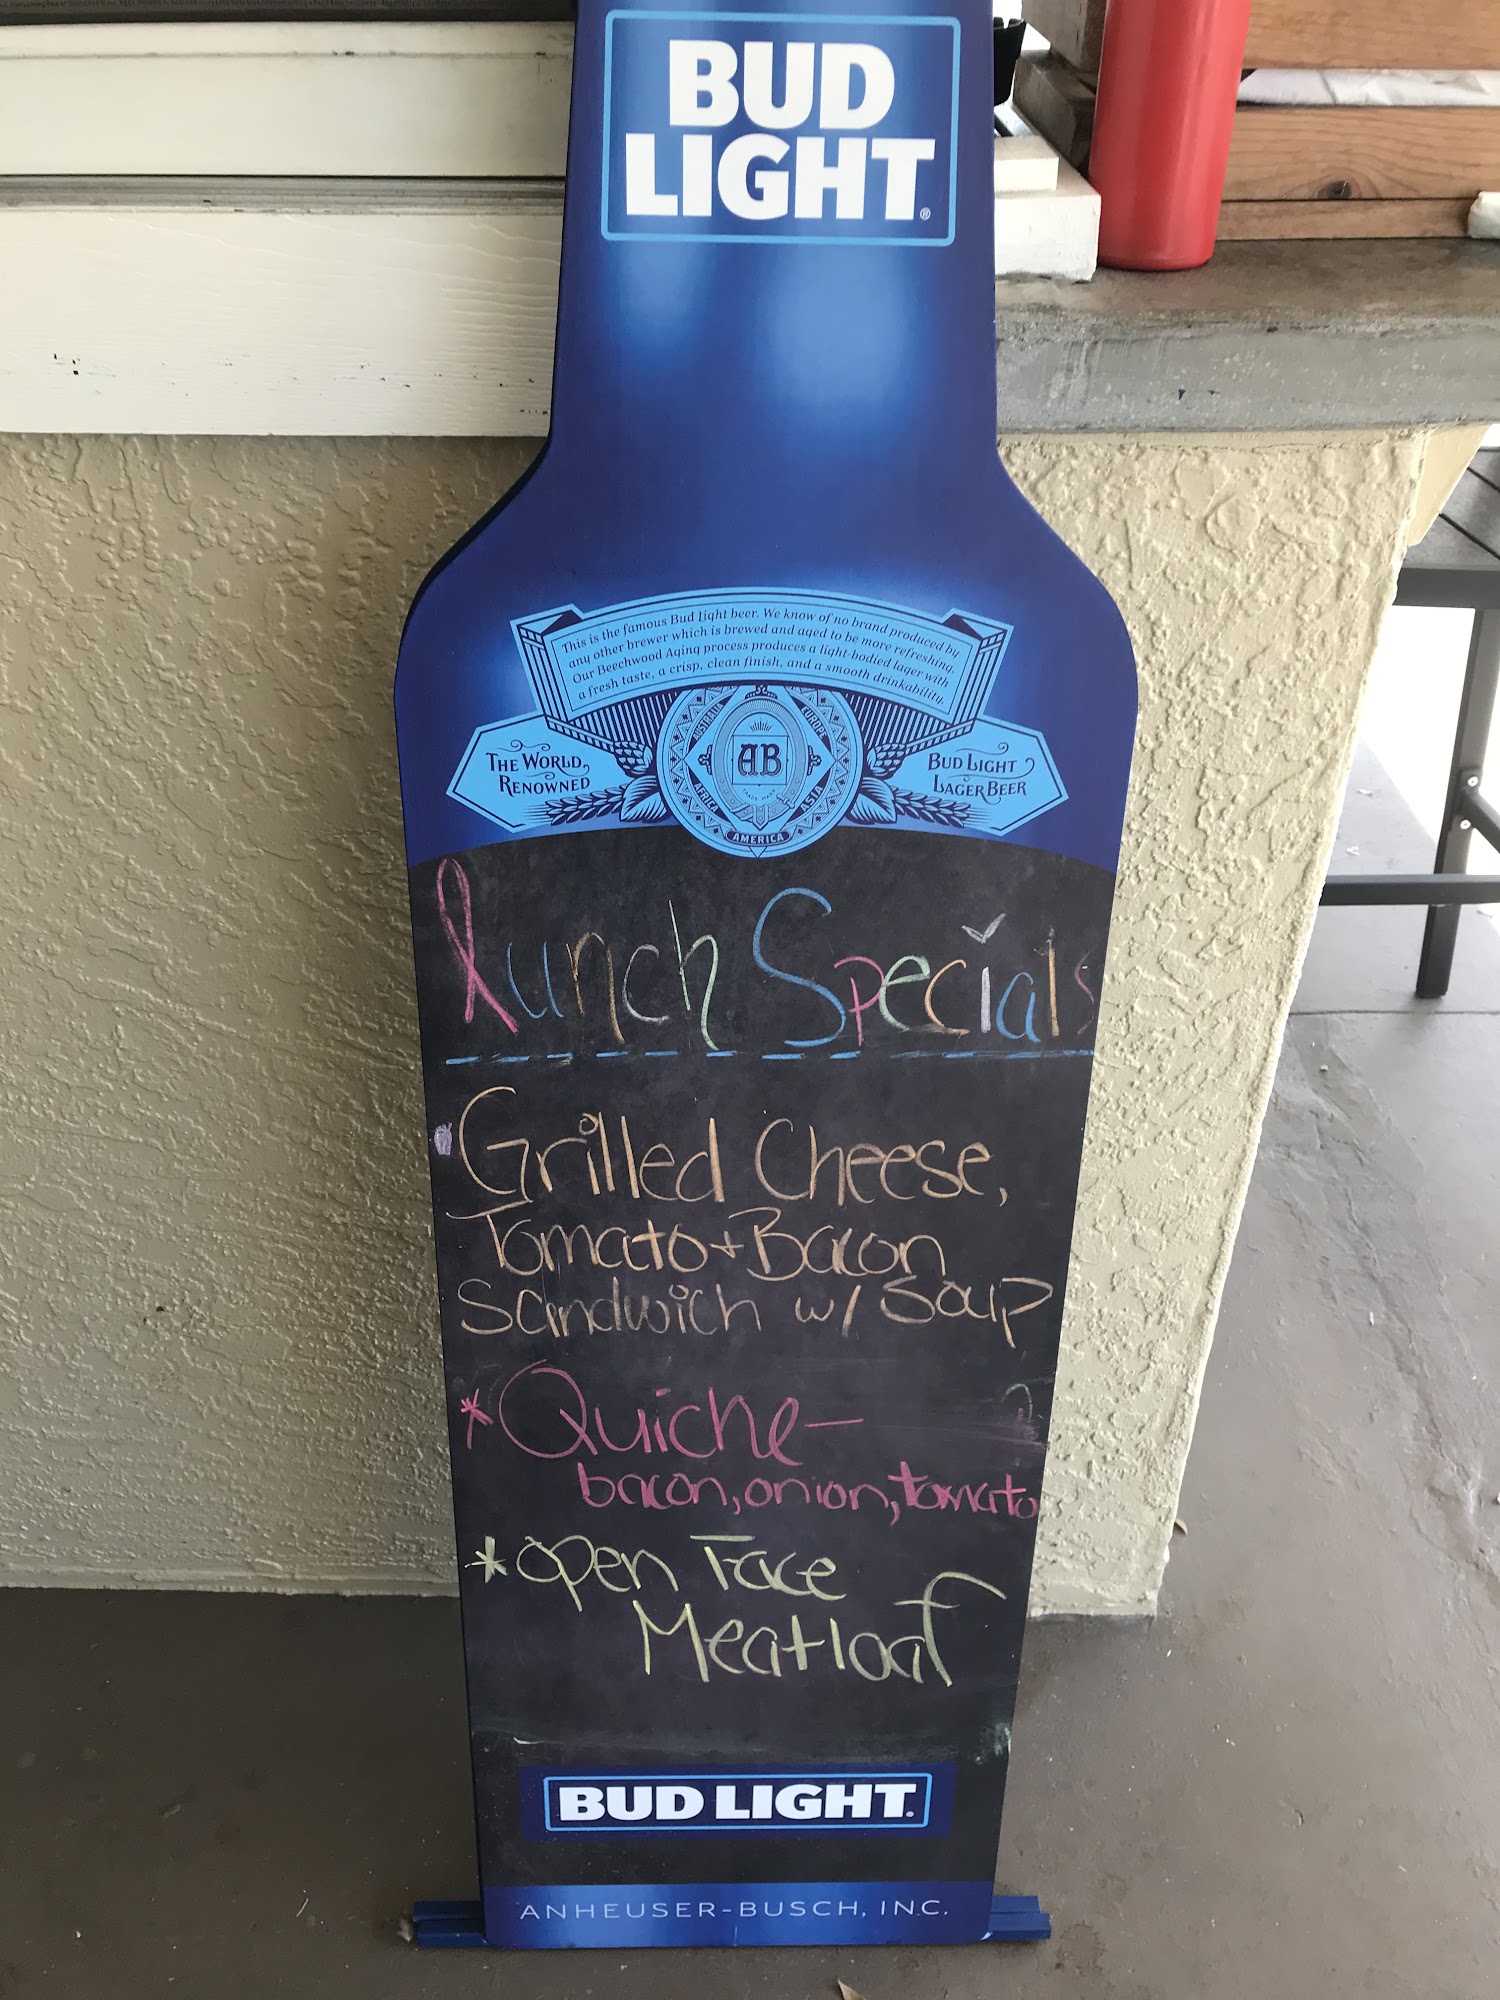 BUD
LIGHT®
This is the famous Bud Light beer. We know of no brand produced by
any other brewer which is brewed and aged to be more refreshing.
Our Beechwood Aging process produces a light-bodied lager with
a fresh taste, a crisp, clean finish, and a smooth drinkability.
THE WORLD RENOWNED
BUD LIGHT LAGER BEER
AUSTRALIA
EUROPE
AB
TRADE MARK
AFRICA
ASIA
AMERICA
Lunch Specials
Grilled Cheese,
Tomato + Bacon
Sandwich w/ Soup
* Quiche -
bacon, onion, tomato
* open Face
Meatloaf
BUD LIGHT.
ANHEUSER-BUSCH, INC.